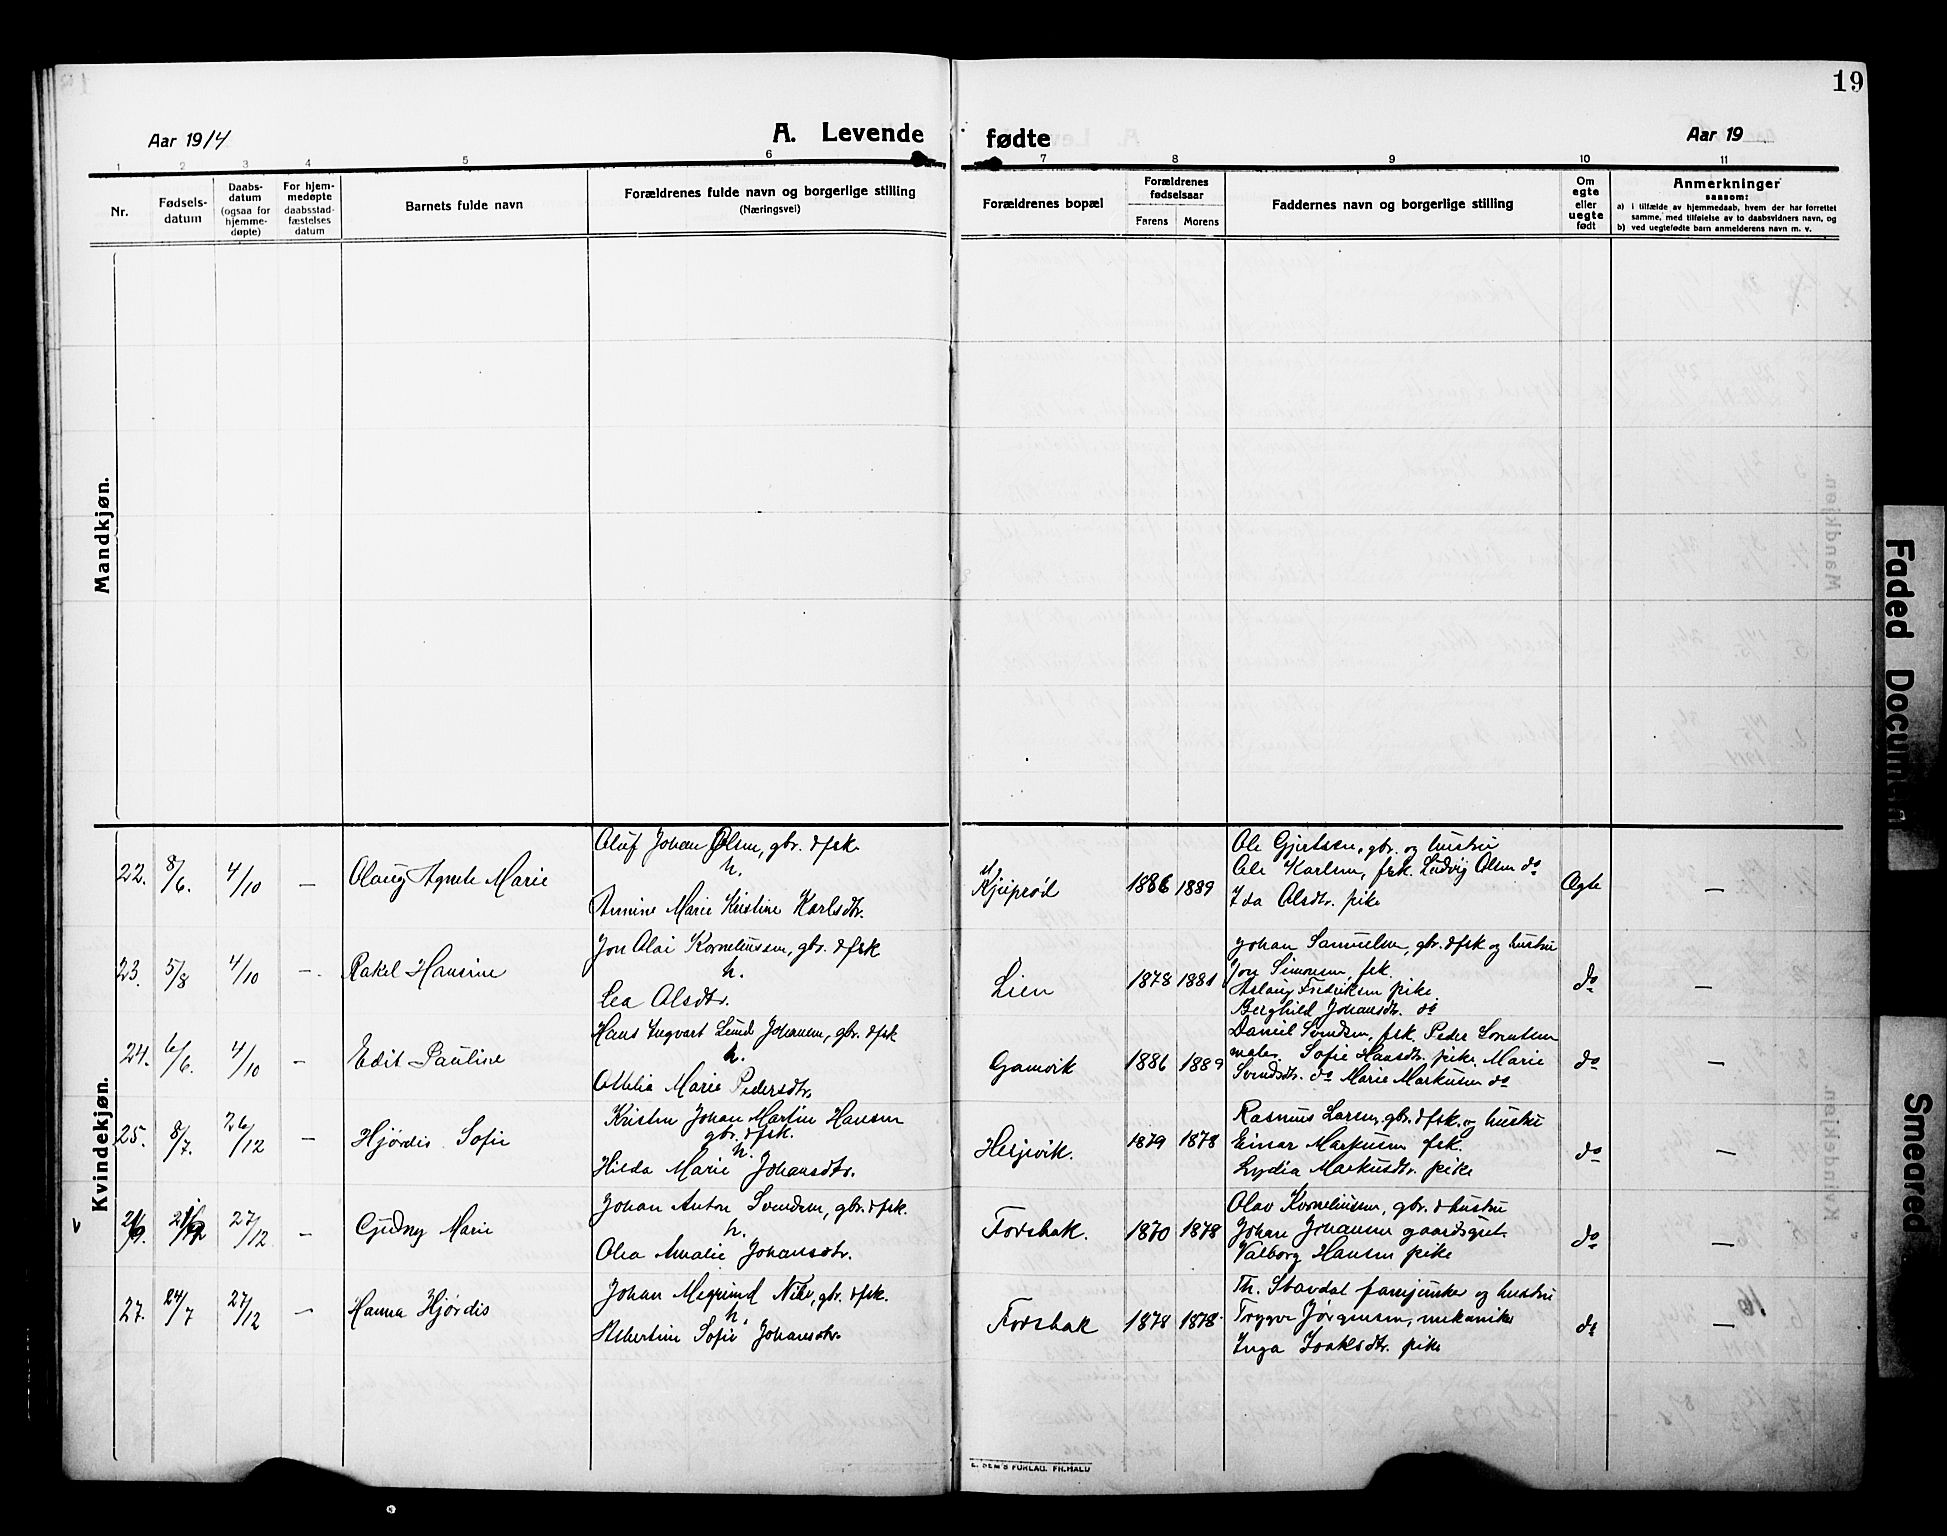 19
Aar 1914
A. Levende fødte
Aar 19
1 2 3 4 5 6 7 8 9 10 11
Nr.
Fødsels-
datum
Daabs-
datum
(ogsaa for
hjemme-
døpte)
For hjem-
medøpte
daabsstad-
fæstelses
datum
Barnets fulde navn
Forældrenes fulde navn og borgerlige stilling
(Næringsvei)
Forældrenes bopæl
Forældrenes
fødselsaar
Farens Morens
Faddernes navn og borgerlige stilling
Om
egte
eller
uegte
født
Anmerkninger
saasom:
a) i tilfælde av hjemmedaab, hvem der har forrettet
samme, med tilføielse av to daabsvidners navn, og
b) ved uegtefødte barn anmelderens navn m. v.
Mandkjøn.
Kvindekjøn.
22. 8/6. 4/10 — Olaug Agnete Marie
Oluf Johan Olsen, gbr. & fsk.
h.
Annine Marie Kristine Karlsdtr.
1886 1889
Ole Gjertsen, gbr. og hustru
Ole Karlsen, fsk. Ludvig Olsen do
Ida Olsdtr. pike
Ægte —
23. 5/8 4/10 — Rakel Hansine
Jon Olai Korneliussen, gbr. & fsk
h.
Lea Olsdtr.
Lien 1878 1881
Johan Samuelsen, gbr. & fsk og hustru
Jon Simonsen, fsk.
Aslaug Fredriksen pike
Berghild Johansdtr. do
do —
24. 6/6. 4/10 — Edit Pauline
Hans Ingvart Lund Johansen, gbr. & fsk
h.
Othelia Marie Pedersdtr.
Gamvik 1886 1889
Daniel Svendsen, fsk. Peder Lorentsen
maler. Sofie Hansdtr. pike. Marie
Svendsdtr. do Marie Markusen do
do —
25. 8/7. 26/12 — Hjørdis Sofie
Kristen Johan Martin Hansen
gbr. & fsk.
h.
Hilda Marie Johansdtr.
Hesjevik. 1879 1878
Rasmus Larsen, gbr. & fsk. og hustru
Einar Markusen fsk.
Lydia Markusdtr. pike
do —
27/12 — Gudny Marie
Johan Anton Svendsen, gbr. & fsk.
h.
Olea Amalie Johansdtr.
Forsbak. 1870 1878
Olav Korneliussen, gbr. & hustru
Johan Johansen gaardsgut.
Valborg Hansen pike
do —
27. 24/7 27/12 — Hanna Hjørdis
Johan Megrund Nils, gbr. & fsk.
h.
Albertine Sofie Johansdtr.
Forsbak 1878 1878
Th. Stavdal fanejunker og hustru
Trygve Jørgensen, mekaniker
Inga Isaksdtr. pike
do —
E. SEM'S FORLAG. FR.HALD
Faded Document
Smeared